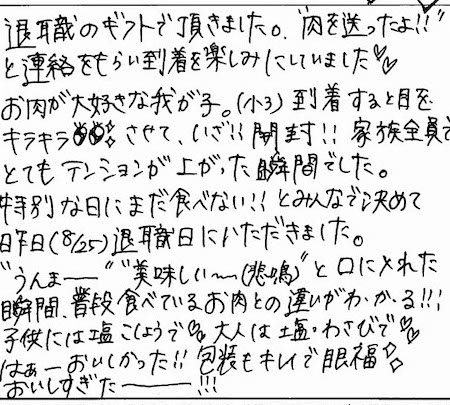 退職のギフトで頂きました。"肉を送ったよ!!"
と連絡をもらい到着を楽しみにしていました♡♡
お肉が大好きな我が子。(小3)到着すると目を
キラキラさせて、いざ!!開封!!家族全員で
とてもテンションが上がった瞬間でした。
特別な日にまだ食べない!!とみんなで決めて
昨日(8/25)退職日にいただきました。
"うんまーー""美味しい〜(悲鳴)"と口に入れた
瞬間、普段食べているお肉との違いがわ・か・る!!!
子供には塩こしょうで♡大人は塩・わさびで♡
はぁーおいしかった!!包装もキレイで眼福♡
おいしすぎたーーー!!!